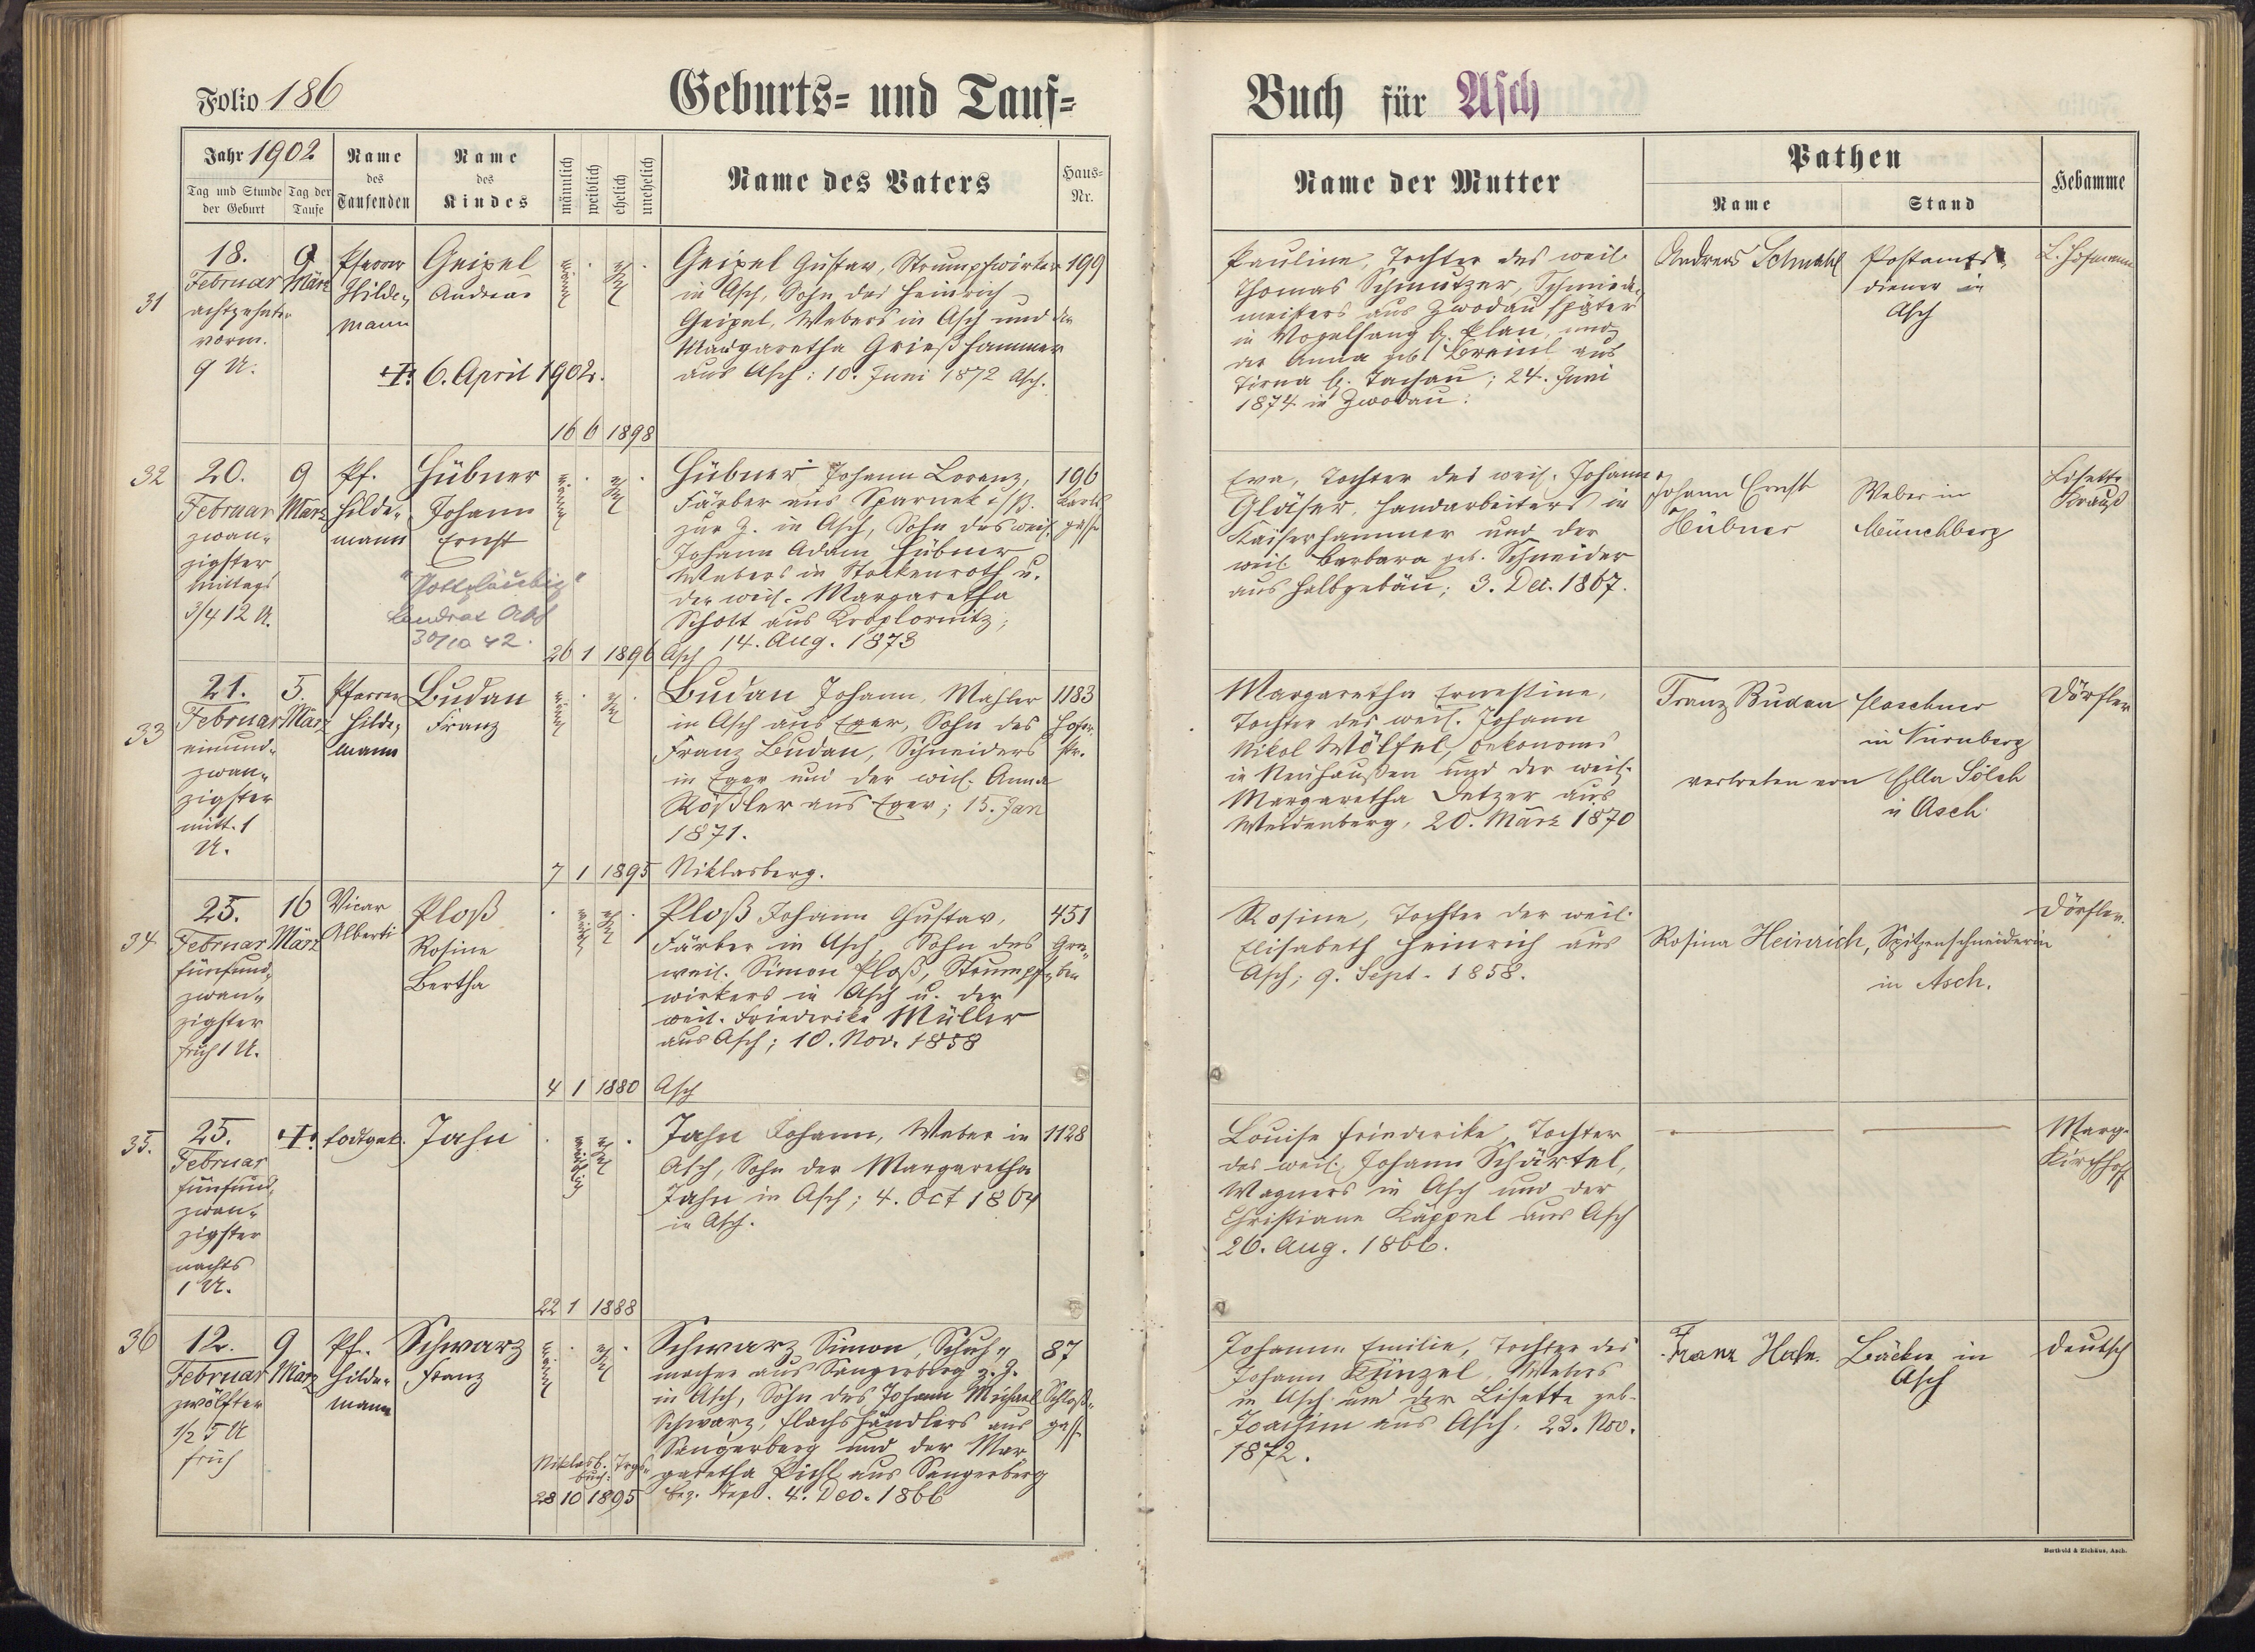 Folio 186
Geburts- und Tauf-
Buch für Asch
Jahr 1902
Tag und Stunde der Geburt
Tag der Taufe
Name des Taufenden
Name des Kindes
männlich
weiblich
ehelich
unehelich
Name des Vaters
Haus-Nr.
Name der Mutter
Pathen
Name
Stand
Hebamme
31
18.
Februar
achtzehnter
vorm.
9 U.
9
März
Pfarrer
Hilde-
mann
Geipel
Andreas
6. April 1902.
männl
ehel
16 6 1898
Geipel Gustav, Strumpfwirker
in Asch, Sohn des Heinrich
Geipel, Webers in Asch und der
Margaretha Grießhammer
aus Asch; 10. Juni 1872 Asch.
199
Pauline, Tochter des weil.
Thomas Schmutzer, Schmiede-
meisters aus Zwodau später
in Vogelsang b. Plan, und
der Anna geb. Breinl aus
Tirna b. Tachau; 24. Juni
1874 in Zwodau.
Andreas Schmahl
Postamts-
diener in
Asch
L. Hofmann
32
20.
Februar
zwan-
zigster
Mittags
3/4 12 U.
9
März
Pf.
Hilde-
mann
Hübner
Johann
Ernst
"Gottgläubig"
Landrat Asch
30/10 42.
männl
ehel
26 1 1896
Hübner Johann Lorenz,
Färber aus Sparnek i/B.
zur Z. in Asch, Sohn des weil.
Johann Adam Hübner
Webers in Stockenroth u.
der weil. Margaretha
Schott aus
Asch 14. Aug. 1873
196
Karls
gasse
Eva, Tochter des weil. Johann
Gläser, Handarbeiters in
Kaiserhammer und der
weil. Barbara geb. Schneider
aus Halbgebäu; 3. Dec. 1867.
Johann Ernst
Hübner
Weber in
Münchberg
Lisette
Krauß
33
21.
Februar
einund-
zwan-
zigster
mitt. 1
U.
5.
März
Pfarrer
Hilde-
mann
Budan
Franz
männl
ehel
7 1 1895
Budan Johann, Mahler
in Asch aus Eger, Sohn des
Franz Budan, Schneiders
in Eger und der weil. Anna
Rößler aus Eger; 15. Jan
1871.
Niklasberg.
1183
Hofer
str.
Margaretha Ernestine,
Tochter des weil. Johann
Nikol Wölfel, Oekonoms
in Neuhaußen und der weil.
Margaretha Detzer aus
Weidenberg, 20. März 1870
Franz Budan
Flaschner
in Nürnberg
vertreten von Ella Sölch
in Asch.
Dörfler
34
25.
Februar
fünfund-
zwan-
zigster
früh 1 U.
16
März
Vicar
Alberti
Ploß
Rosine
Bertha
weibl
ehel
4 1 1880
Ploß Johann Gustav,
Färber in Asch, Sohn des
weil. Simon Ploß, Strumpf-
wirkers in Asch u. der
weil. Friederike Müller
aus Asch; 10. Nov. 1858
Asch
451
Gra-
ben
Rosine, Tochter der weil.
Elisabeth Heinrich aus
Asch; 9. Sept. 1858.
Rosina Heinrich, Spitzenschneiderin
in Asch.
Dörfler.
35.
25.
Februar
fünfund-
zwan-
zigster
nachts
1 U.
todtgeb.
Jahn
weiblich
ehel
22 1 1888
Jahn Johann, Weber in
Asch, Sohn der Margaretha
Jahn in Asch; 4. Oct 1864
in Asch.
1128
Louise Friederike, Tochter
des weil. Johann Schärtel,
Wagners in Asch und der
Christiane Käppel aus Asch
26. Aug. 1866.
Marg.
Kirchhoff
36
12.
Februar
zwölfter
1/2 5 U
früh
9
März
Pf.
Hilde-
mann
Schwarz
Franz
männl
ehel
Niklasb.
28 10 1895
Schwarz Simon, Schuh-
macher aus Sangerberg z. Z.
in Asch, Sohn des Johann Michael
Schwarz, Flachshändlers aus
Sangerberg und der Mar-
garetha Pichl aus Sangerberg
bez. Tepl. 4. Dec. 1866
87
Schloß-
gasse
Johanne Emilie, Tochter des
Johann Künzel, Webers
in Asch und der Lisette geb.
Joachim aus Asch. 23. Nov.
1872.
Franz Hahn
Bäcker in
Asch
Deutsch
Berthold & Ziehäus, Asch.